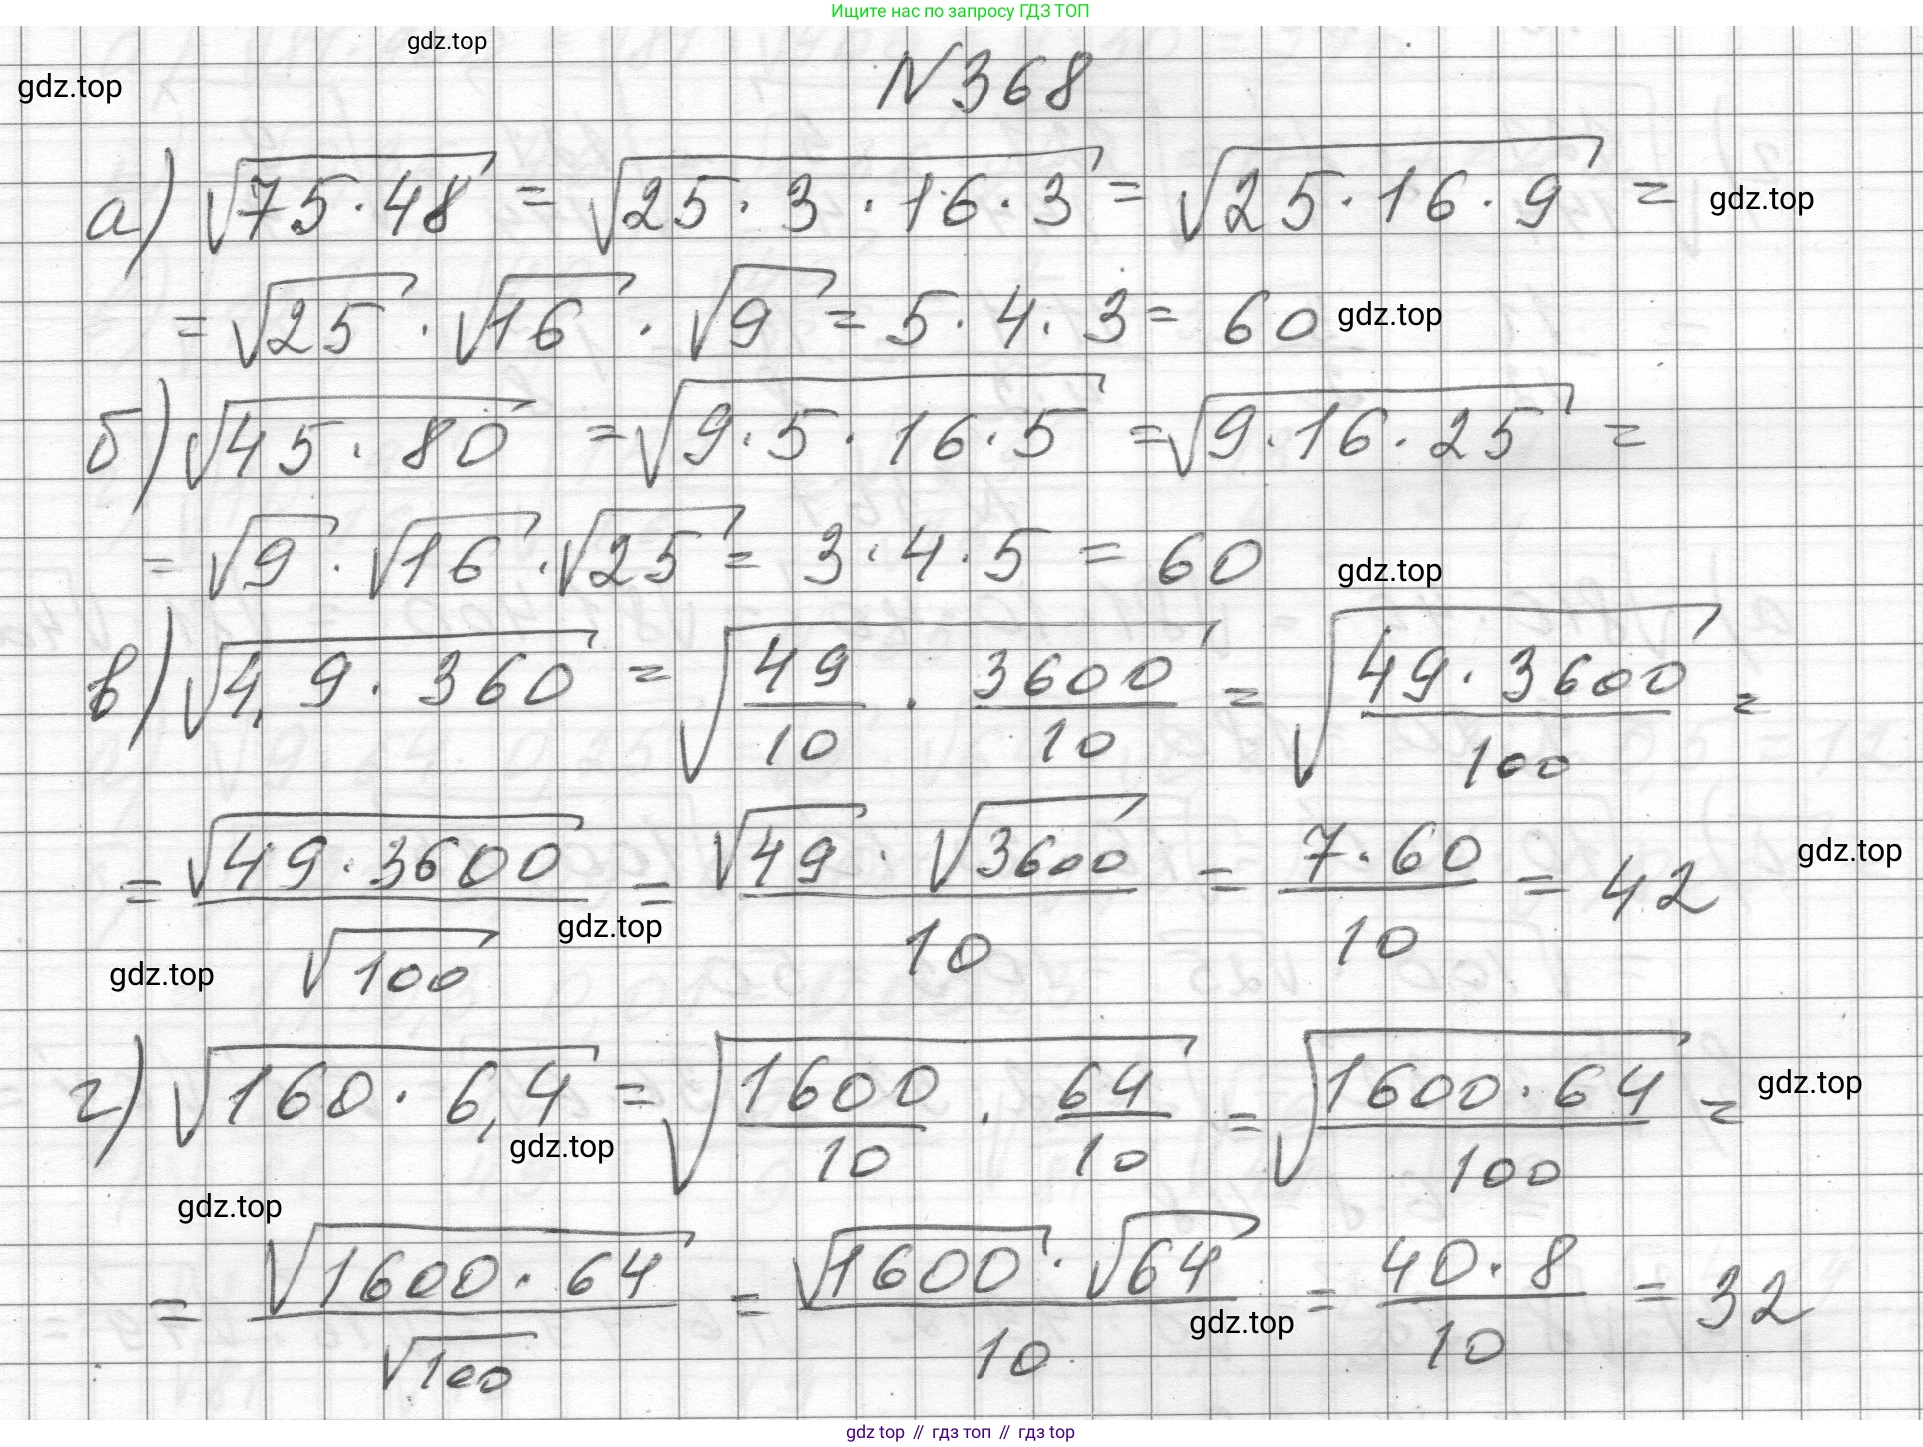 Ищите нас по запросу ГДЗ ТОП
gdz.top
gdz.top
N 368
а) √(75·48) = √(25·3·16·3) = √(25·16·9) =
gdz.top
= √25 · √16 · √9 = 5·4·3 = 60
gdz.top
б) √(45·80) = √(9·5·16·5) = √(9·16·25) =
= √9 · √16 · √25 = 3·4·5 = 60
gdz.top
в) √(4,9·360) = √(49/10 · 3600/10) = √((49·3600)/100) =
= √(49·3600)/√100 = (√49 · √3600)/10 = (7·60)/10 = 42
gdz.top
gdz.top
gdz.top
г) √(160·6,4) = √(1600/10 · 64/10) = √((1600·64)/100) =
gdz.top
gdz.top
gdz.top
= √(1600·64)/√100 = (√1600 · √64)/10 = (40·8)/10 = 32
gdz.top
gdz top // гдз топ // гдз top